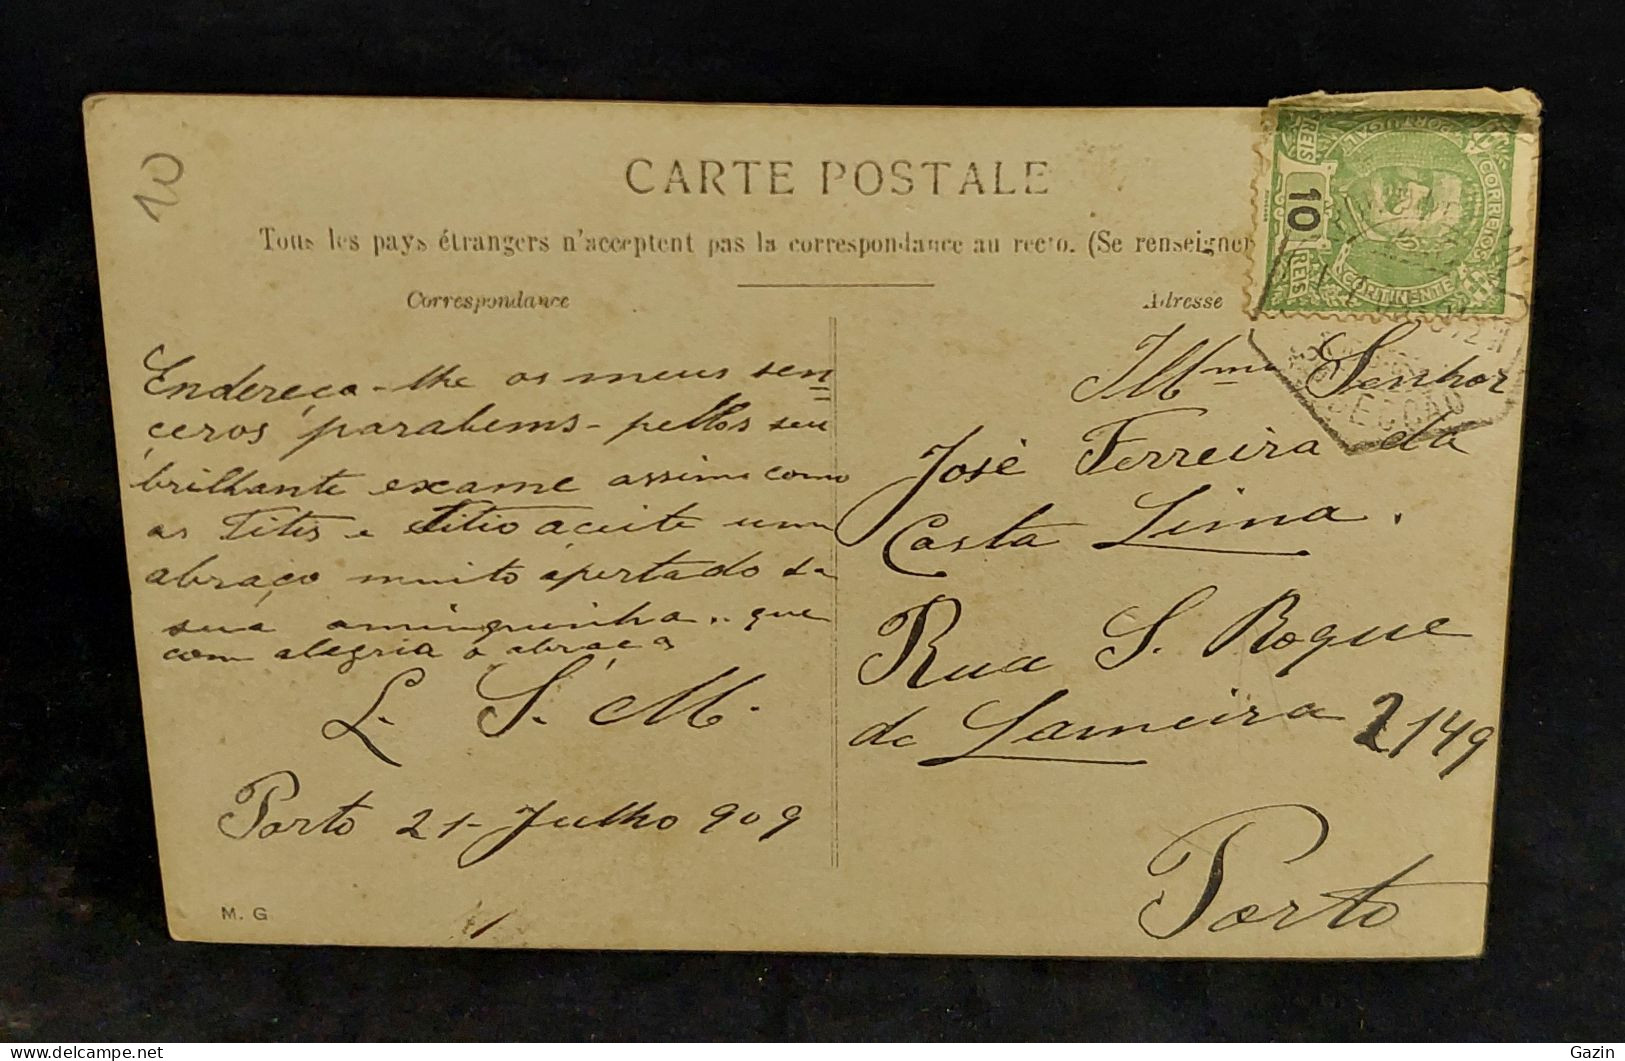 20
CARTE POSTALE
Tous les pays étrangers n'acceptent pas la correspondance au recto. (Se renseigner
Correspondance
Endereça-lhe os meus sen
ceros parabems - pello seu
brilhante exame assim como
as Titis e Titio aceite um
abraço muito apertado da
sua aminguinha.. que
com alegria o abraça
L. S. M.
Porto 21 - Julho 909
M. G
Adresse
Illmo Senhor
José Ferreira da
Costa Lima.
Rua S. Roque
da Lameira 2149
Porto
PORTUGAL
CORREIOS
CONTINENTE
REIS
10
REIS
SECCÃO
Gazin